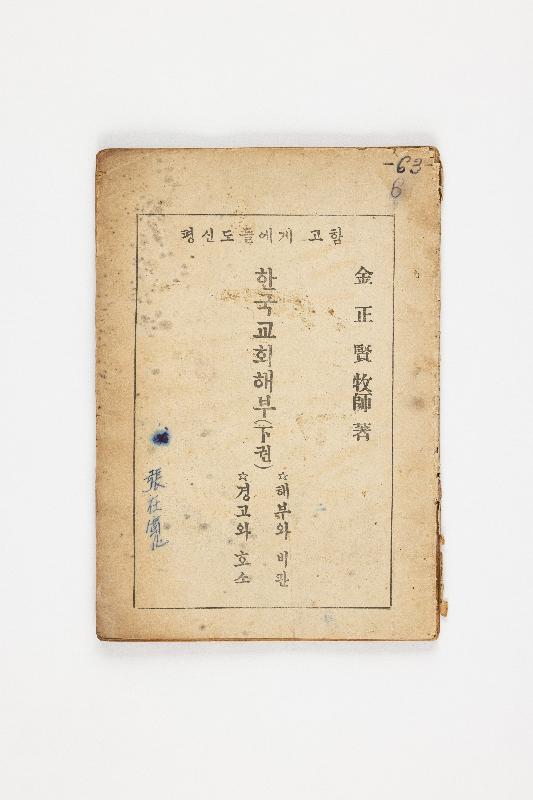 -63-
6
평신도들에게 고함
金正賢牧師 著
한국교회해부(下권)
☆해부와 비판
☆경고와 호소